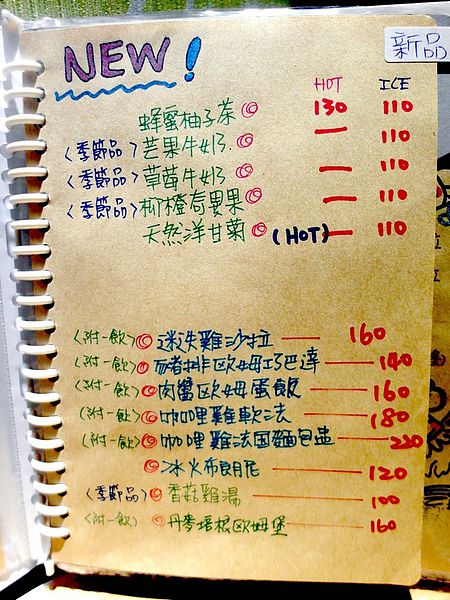 新品
NEW!
HOT ICE
蜂蜜柚子茶◎ 130 110
〈季節品〉芒果牛奶◎ — 110
〈季節品〉草莓牛奶◎ — 110
〈季節品〉柳橙百香果◎ — 110
天然洋甘菊◎(HOT) — 110
〈附一飲〉◎迷迭雞沙拉 — 160
〈附一飲〉◎豬排歐姆巧巴達 — 140
〈附一飲〉◎肉醬歐姆蛋飯 — 160
〈附一飲〉◎咖哩雞軟法 — 180
〈附一飲〉◎咖哩雞法国麵包盅 — 220
◎冰火布朗尼 — 120
〈季節品〉◎香菇雞湯 — 100
〈附一飲〉◎丹麥培根歐姆堡 — 160